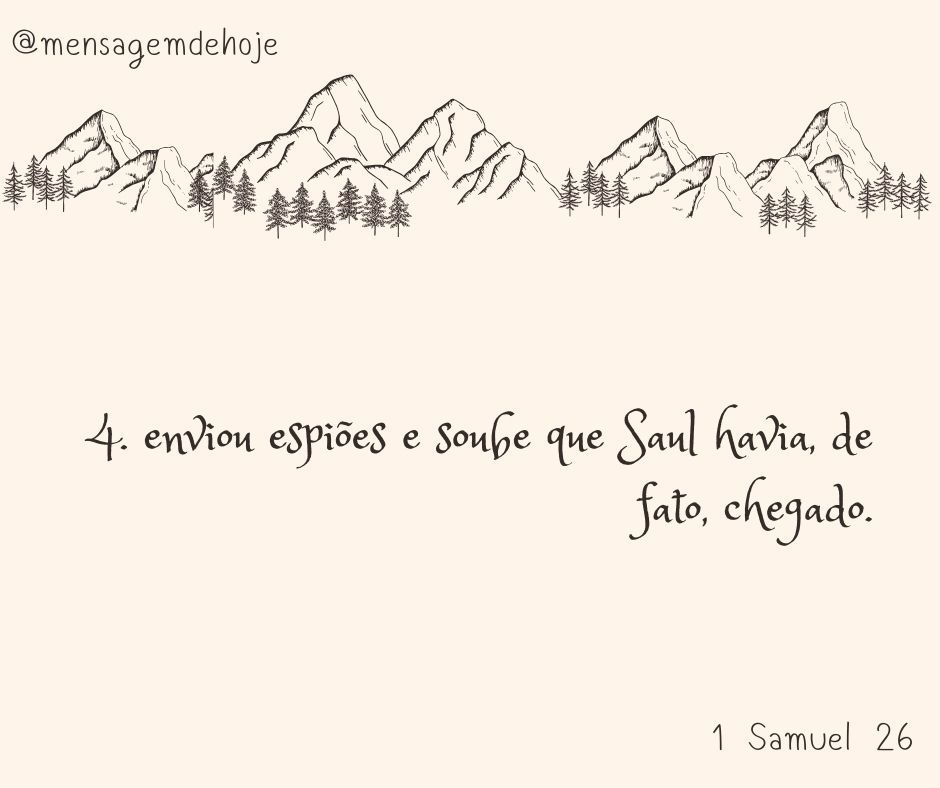 @mensagemdehoje
4. enviou espiões e soube que Saul havia, de
fato, chegado.
1 Samuel 26